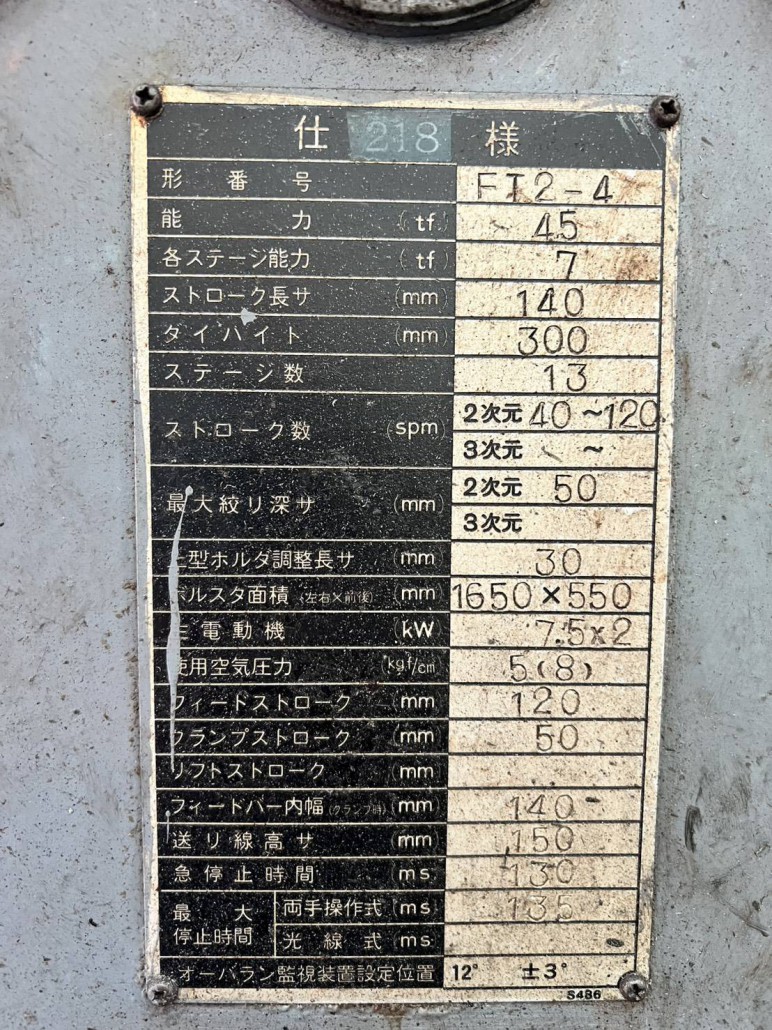 仕 218 様
形番号 FT2-4
能力 (tf) 45
各ステージ能力 (tf) 7
ストローク長サ (mm) 140
ダイハイト (mm) 300
ステージ数 13
ストローク数 (spm) 2次元 40 ~120
3次元 ~
最大絞リ深サ (mm) 2次元 50
3次元
上型ホルダ調整長サ (mm) 30
ボルスタ面積 (左右×前後) (mm) 1650×550
主電動機 (kW) 7.5×2
使用空気圧力 (kgf/cm 5(8)
フィードストローク (mm) 120
クランプストローク (mm) 50
リフトストローク (mm)
フィードバー内幅 (クランプ時) (mm) 140
送リ線高サ (mm) 150
急停止時間 (ms) 130
最大停止時間 両手操作式 (ms) 135
光線式 (ms)
オーバラン監視装置設定位置 12° ±3°
S486